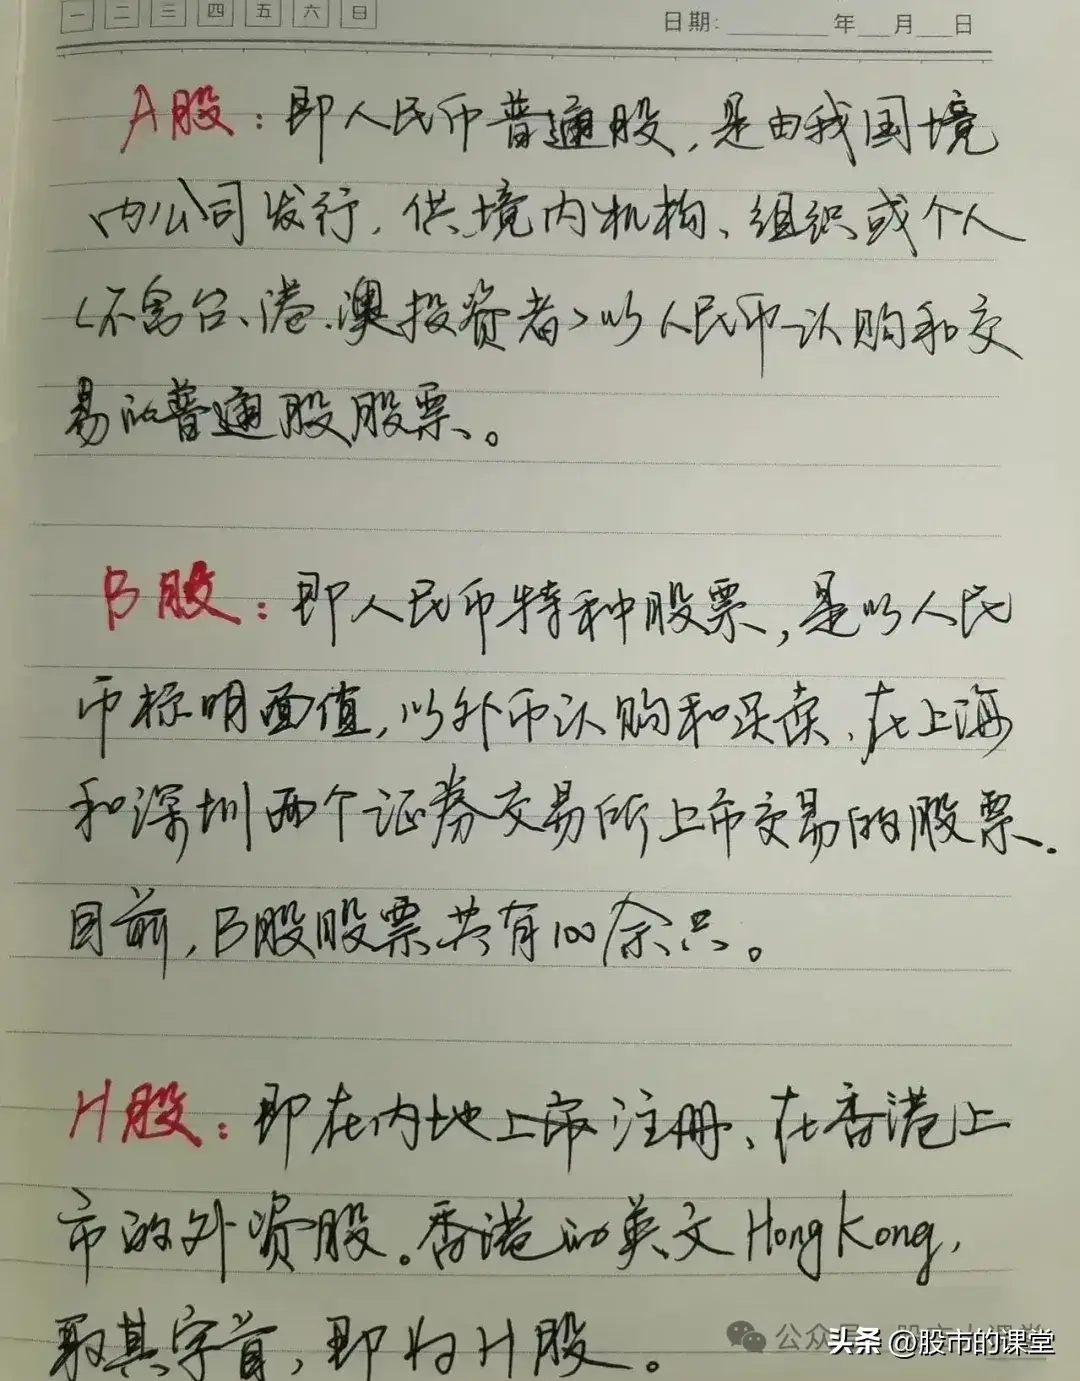 一 二 三 四 五 六 日
日期: 年 月 日
A股：即人民币普通股，是由我国境
内公司发行，供境内机构、组织或个人
(不含台、港、澳投资者)以人民币认购和交
易的普通股股票。
B股：即人民币特种股票，是以人民
币标明面值，以外币认购和买卖、在上海
和深圳两个证券交易所上市交易的股票.
目前，B股股票共有100余只。
H股：即在内地上市注册、在香港上
市的外资股。香港的英文HongKong,
取其字首，即为H股。
公众号
头条 @股市的课堂